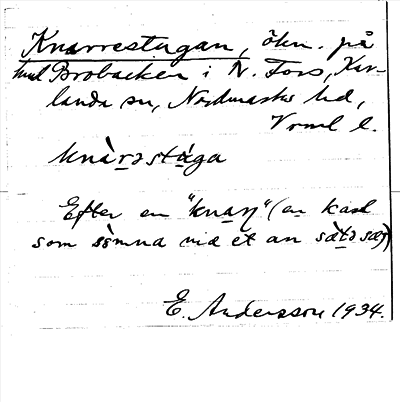 Knarrestugan, ökn. på
hmd Brobacken i N. Fors, Kar-
landa sn, Nordmarks hd,
Vrml l.
knàrəstùga
Efter en "knaŋ" (en karl
som sòmna vid et an sàtə sæg)
E. Andersson 1934.